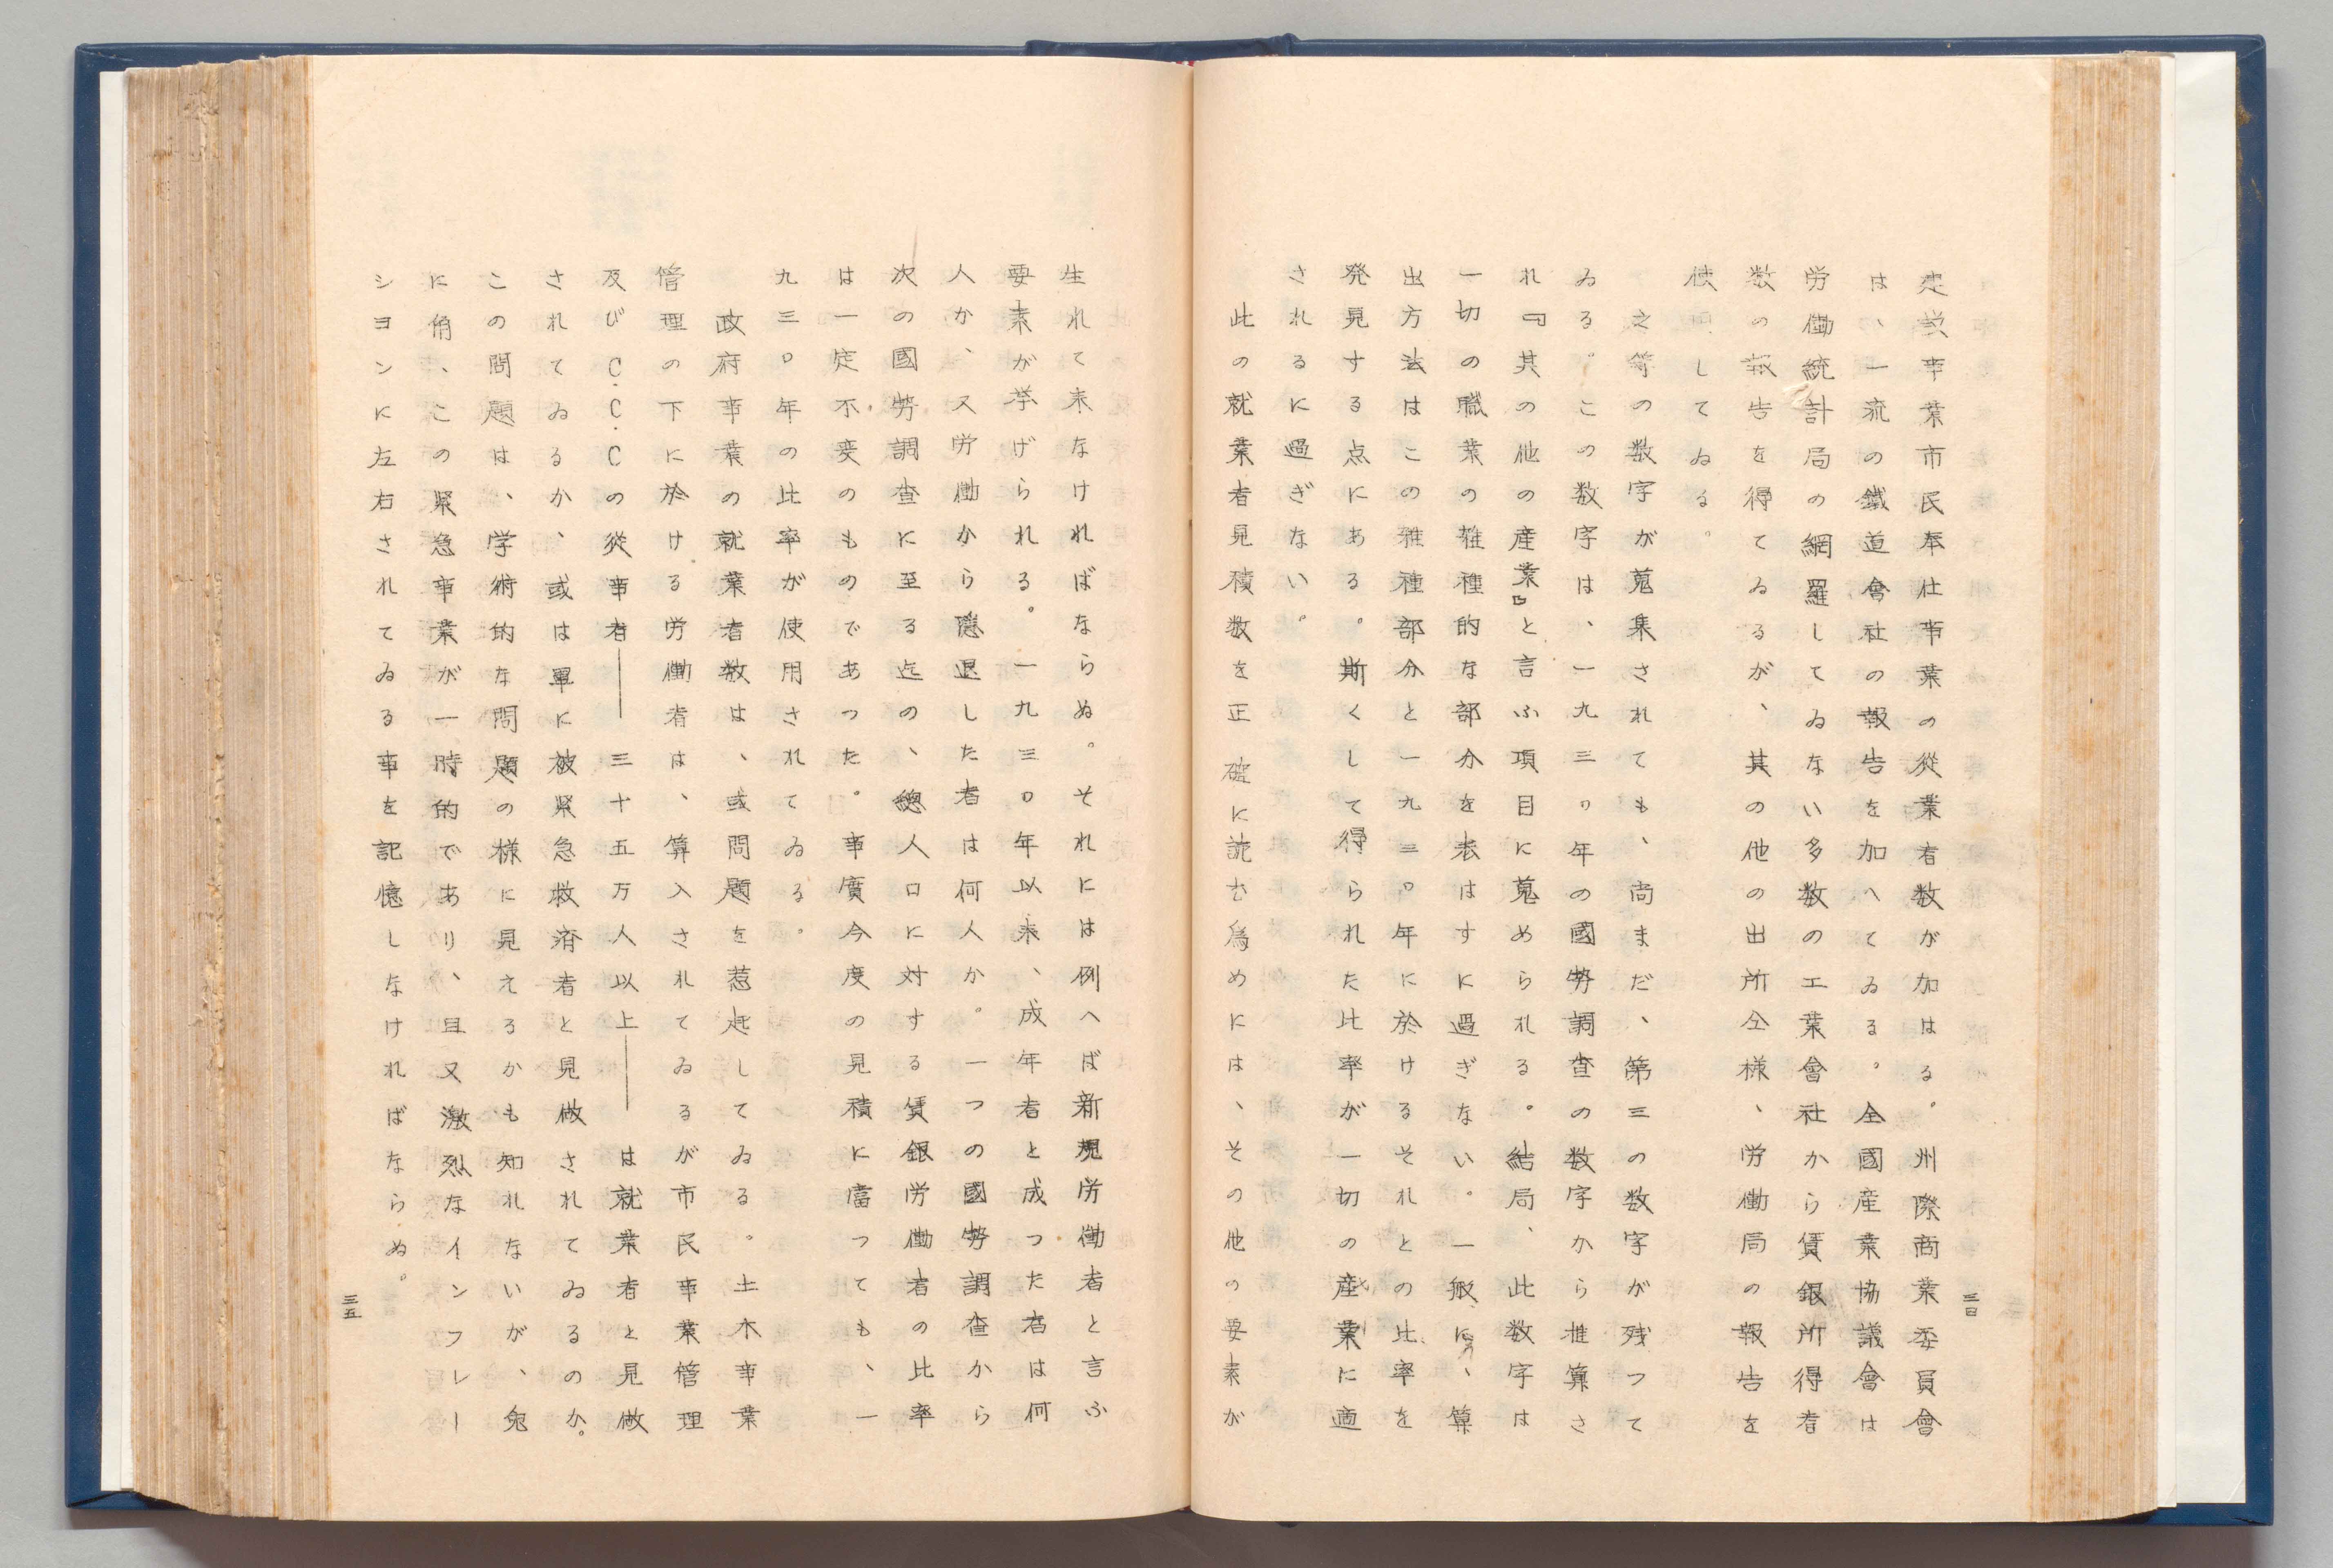 建설事業市民奉仕事業の從業者数が加はる。州際商業委員會
は、一流の鐵道會社の報告を加へてゐる。全國産業協議會は
労働統計局の網羅してゐない多数の工業會社から賃銀所得者
数の報告を得てゐるが、其の他の出所仝様、労働局の報告を
使用してゐる。
之等の数字が蒐集されても、尚まだ、第三の数字が残つて
ゐる。この数字は、一九三〇年の國勢調査の数字から推算さ
れ『其の他の産業』と言ふ項目に蒐められる。結局、此数字は
一切の職業の雑種的な部分を表はすに過ぎない。一般に、算
出方法はこの雑種部分と一九三〇年に於けるそれとの比率を
発見する点にある。斯くして得られた比率が一切の産業に適
されるに過ぎない。
此の就業者見積数を正確に読む為めには、その他の要素が
三四
生れて来なければならぬ。それには例へば新規労働者と言ふ
要素が挙げられる。一九三〇年以来、成年者と成つた者は何
人か、又労働から隠退した者は何人か。一つの國勢調査から
次の國勢調査に至る迄の、總人口に対する賃銀労働者の比率
は一定不変のものであつた。事實今度の見積に當つても、一
九三〇年の比率が使用されてゐる。
政府事業の就業者数は、或問題を惹起してゐる。土木事業
管理の下に於ける労働者は、算入されてゐるが市民事業管理
及びC.C.Cの從事者――三十五万人以上――は就業者と見做
されてゐるか、或は單に被緊急救済者と見做されてゐるのか。
この問題は、学術的な問題の様に見えるかも知れないが、兔
に角、この緊急事業が一時的であり、且又激烈なインフレー
シヨンに左右されてゐる事を記憶しなければならぬ。
三五